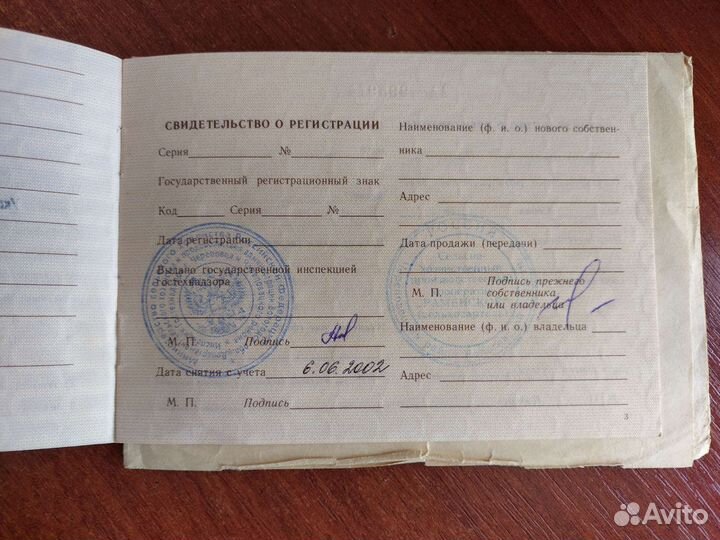 СВИДЕТЕЛЬСТВО О РЕГИСТРАЦИИ
Серия №
Государственный регистрационный знак
Код Серия №
Дата регистрации
Выдано государственной инспекцией
гостехнадзора
М. П. Подпись
Дата снятия с учета 6.06.2002
М. П. Подпись
Наименование (ф. и. о.) нового собствен-
ника
Адрес
Дата продажи (передачи)
М. П. Подпись прежнего
собственника
или владельца
Наименование (ф. и. о.) владельца
Адрес
3
Avito